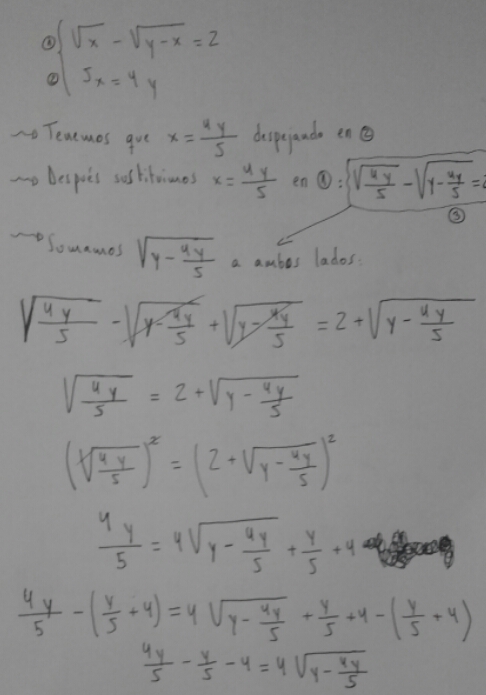 ① { √x - √(y-x) = 2
② { 5x = 4y
~~> Tenemos que x = 4y/5 despejando en ②
~~> Después sustituimos x = 4y/5 en ①: { √(4y/5) - √(y - 4y/5) = 2
③
~~> Sumamos √(y - 4y/5) a ambos lados:
√(4y/5) - √(y - 4y/5) + √(y - 4y/5) = 2 + √(y - 4y/5)
√(4y/5) = 2 + √(y - 4y/5)
(√(4y/5))² = (2 + √(y - 4y/5))²
4y/5 = 4√(y - 4y/5) + y/5 + 4
4y/5 - (y/5 + 4) = 4√(y - 4y/5) + y/5 + 4 - (y/5 + 4)
4y/5 - y/5 - 4 = 4√(y - 4y/5)